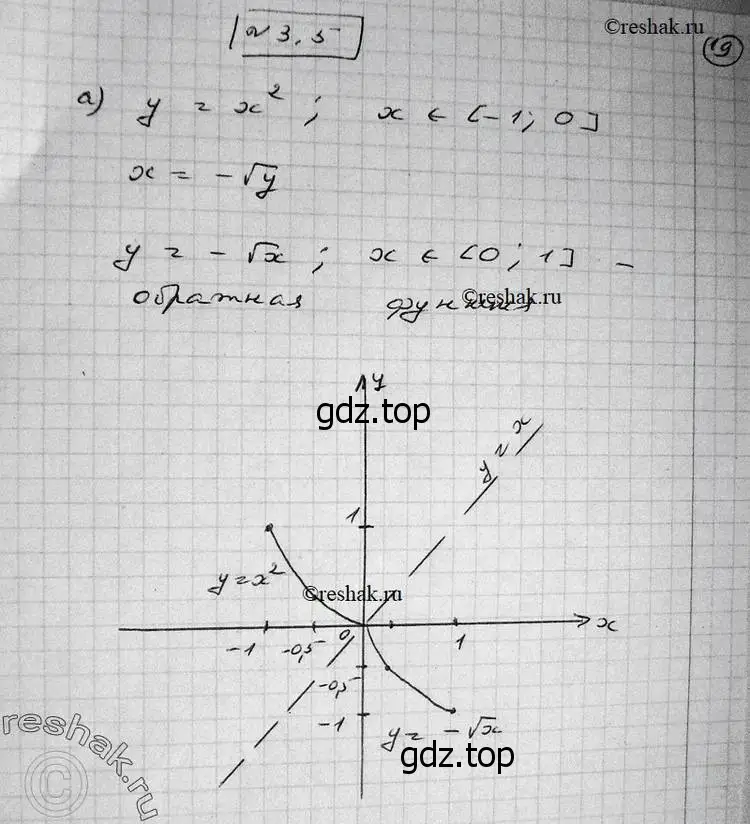 ©reshak.ru
№ 3.5
19
а) y = x²; x ∈ [-1; 0]
x = -√y
y = -√x; x ∈ [0; 1] -
обратная функция
©reshak.ru
y
gdz.top
y = x
1
y = x²
©reshak.ru
-1 -0,5 0 1 x
-0,5
-1
y = -√x
gdz.top
reshak.ru
©